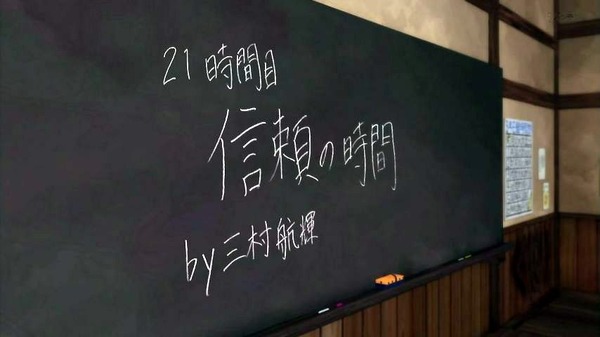 21時間目
信頼の時間
by 三村航輝